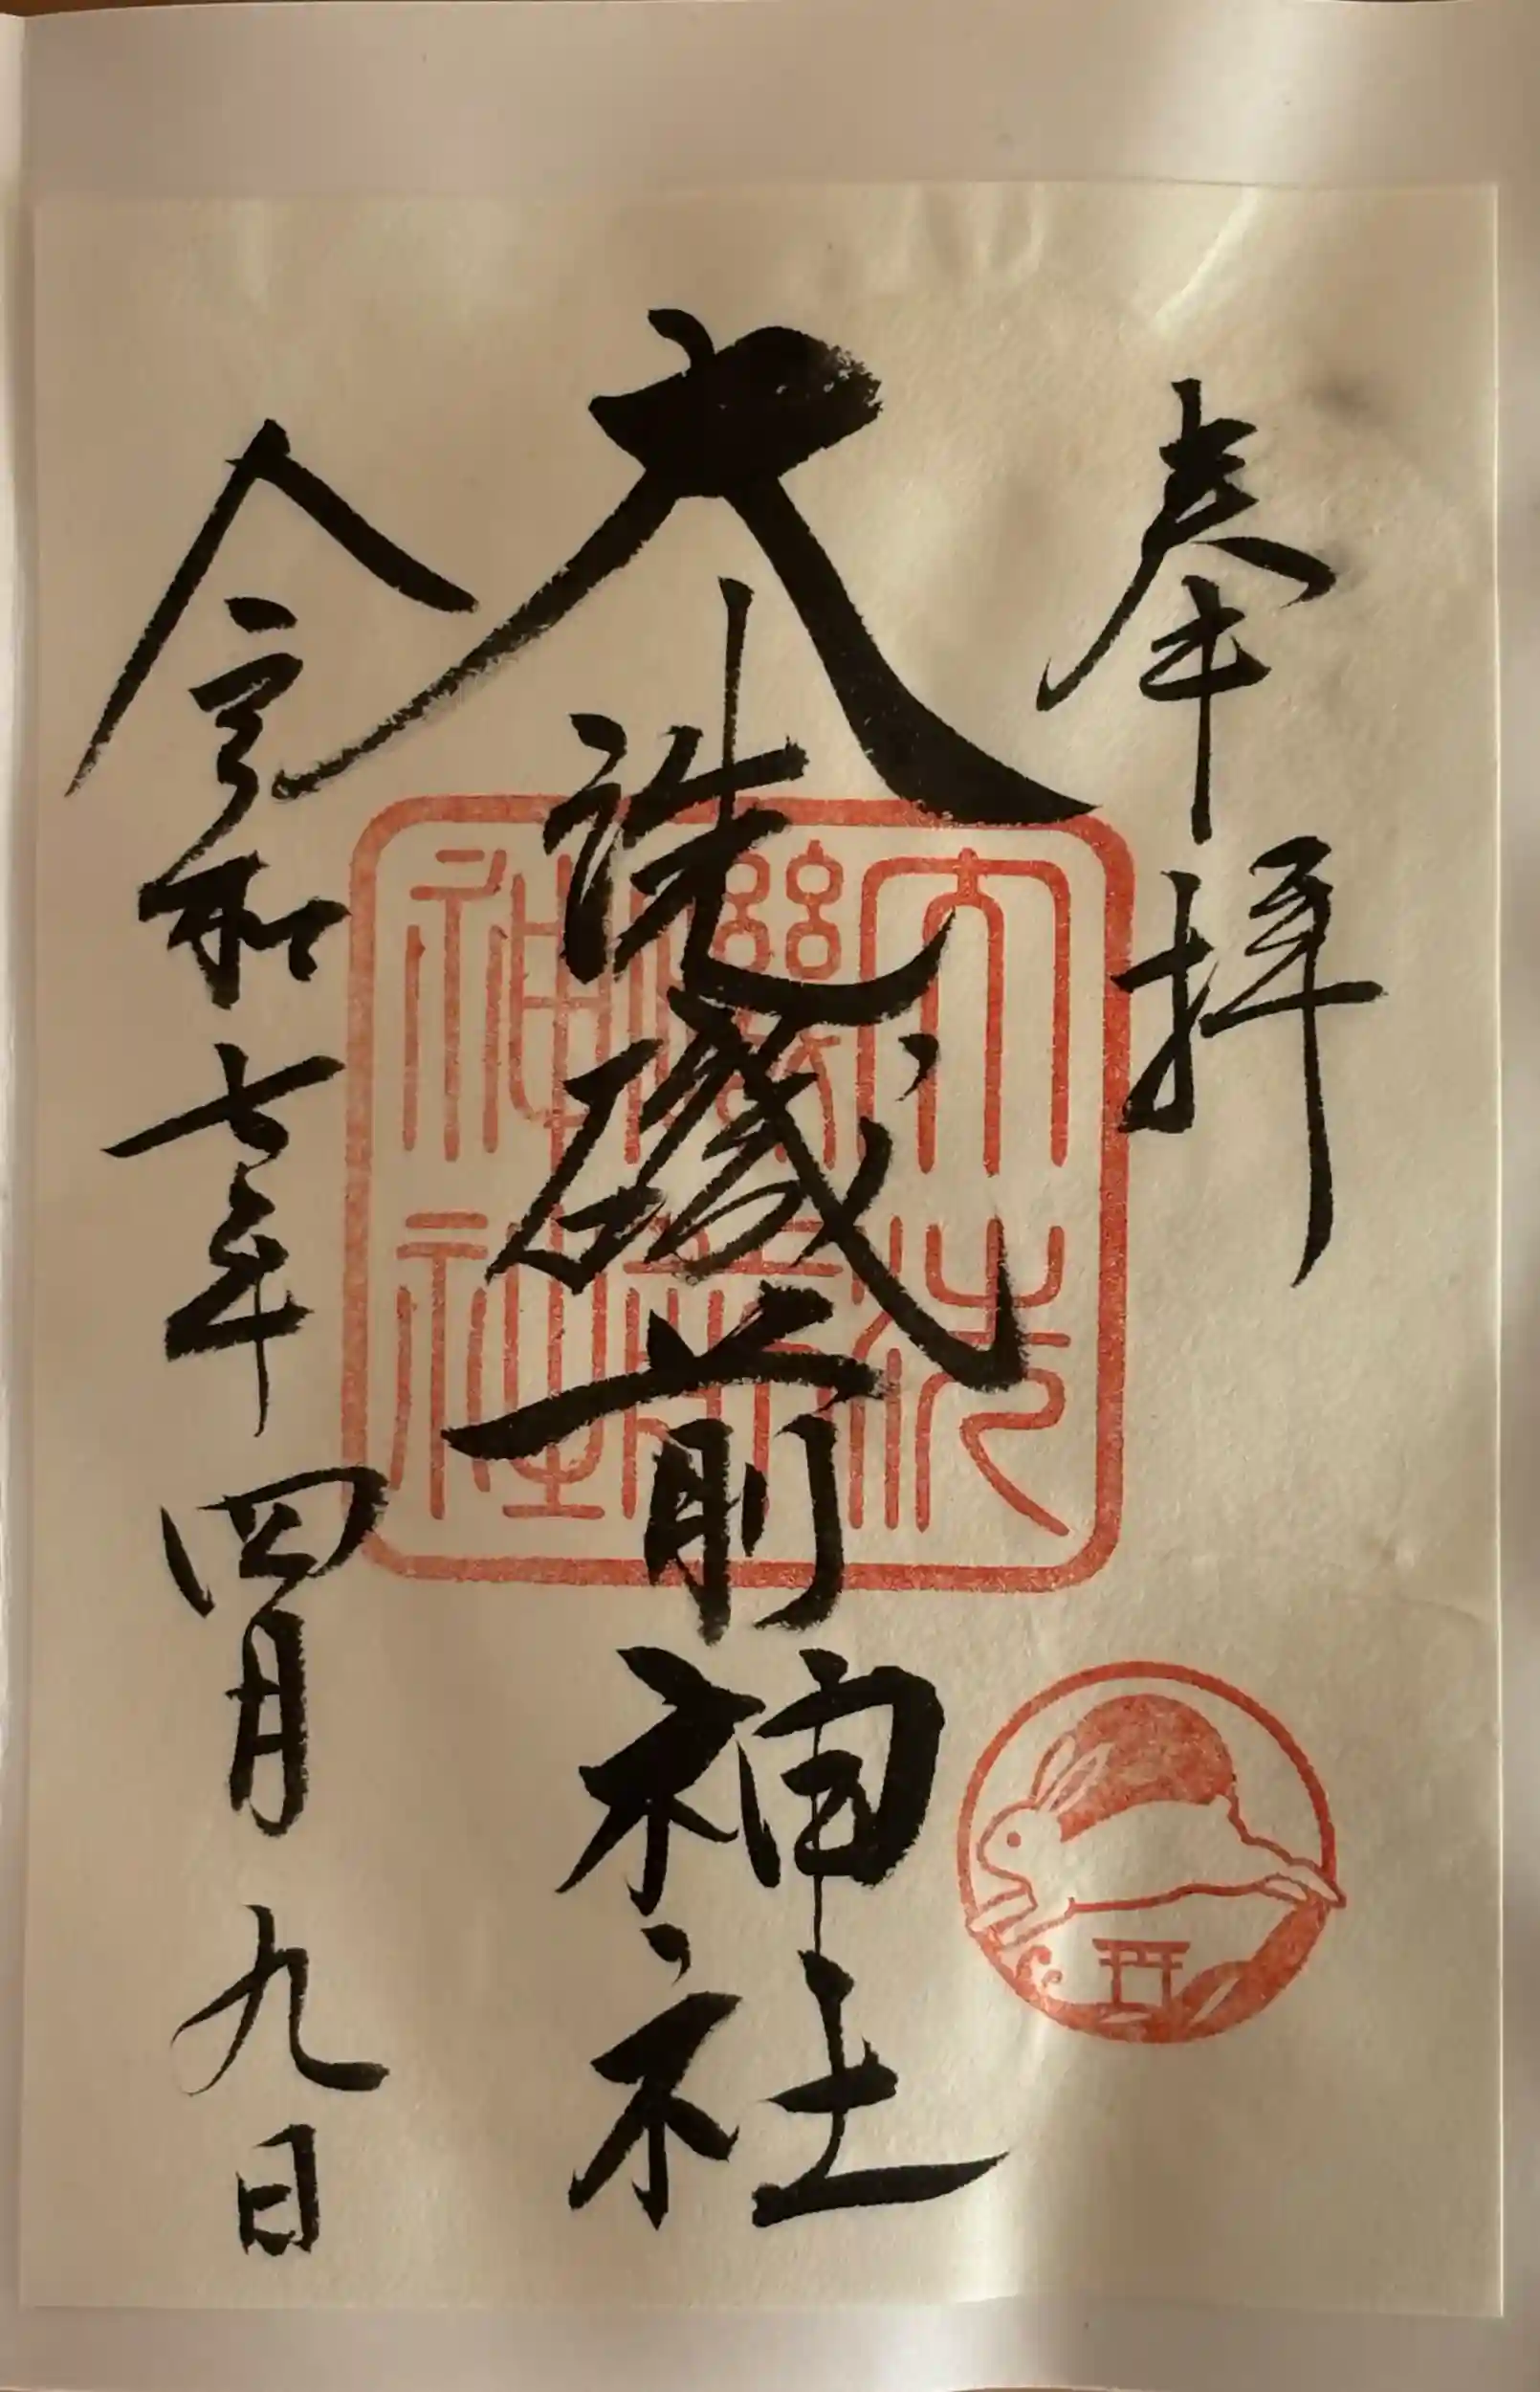 奉拝
大洗磯前神社
令和七年四月九日
大洗
磯前
神社